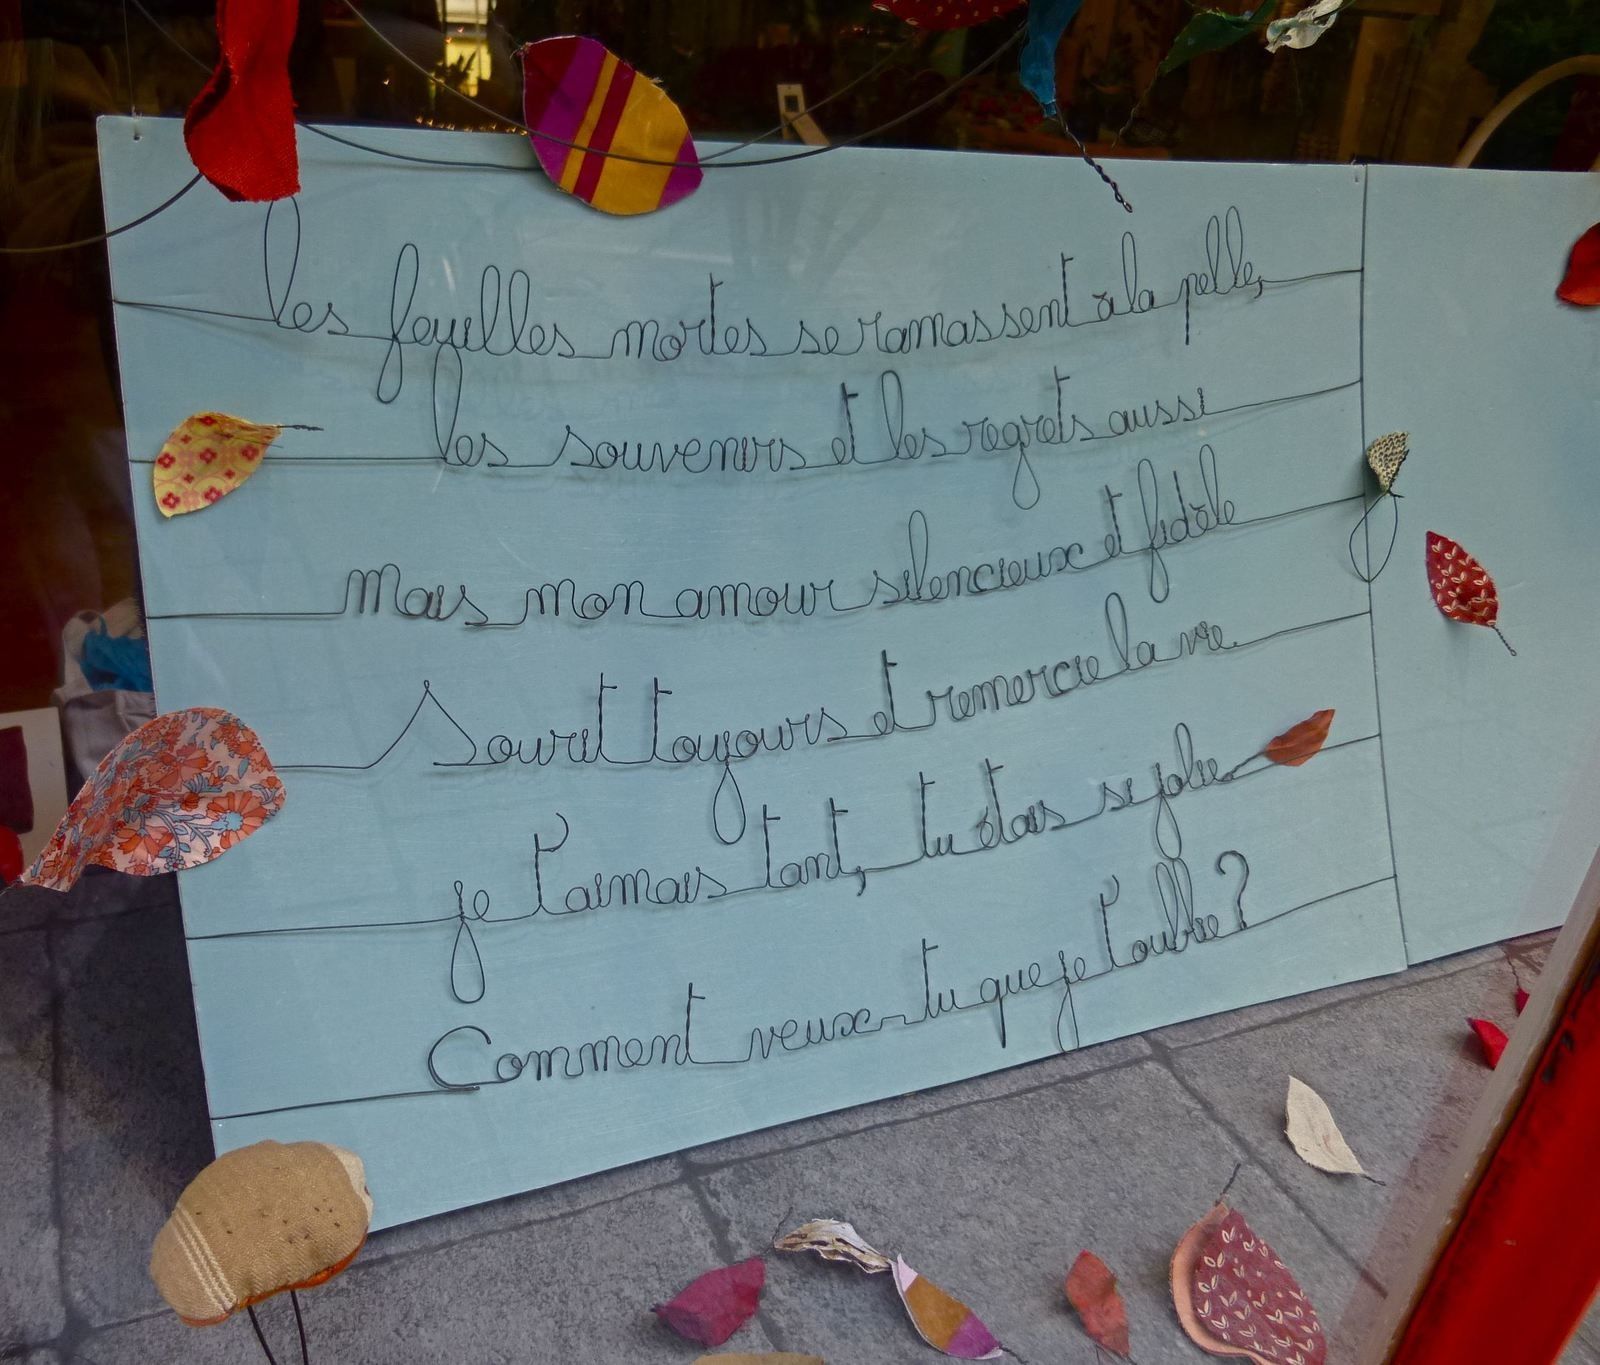 les feuilles mortes se ramassent à la pelle,
les souvenirs et les regrets aussi
Mais mon amour silencieux et fidèle
Sourit toujours et remercie la vie
je t'aimais tant, tu étais si jolie
Comment veux-tu que je t'oublie?